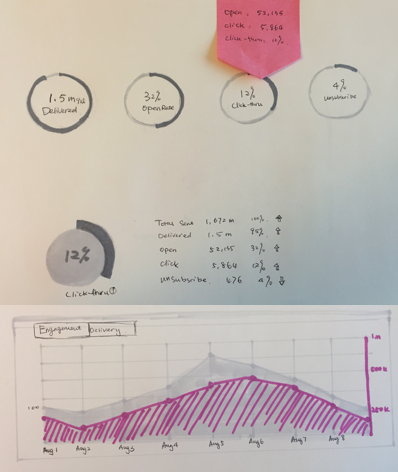 open. 52,145
click. 5,864
click-thru. 12%
1.5 mil
Delivered
32%
Open Rate
12%
Click-thru
4%
Unsubscribe
12%
Click-thru
Total Sent 1,672 m 100%
Delivered 1.5 m 95%
Open 52,145 32%
Click 5,864 12%
Unsubscribe 676 4%
Engagement Delivery
1m
500k
100
250k
Aug 1 Aug 2 Aug 3 Aug 4 Aug 5 Aug 6 Aug 7 Aug 8